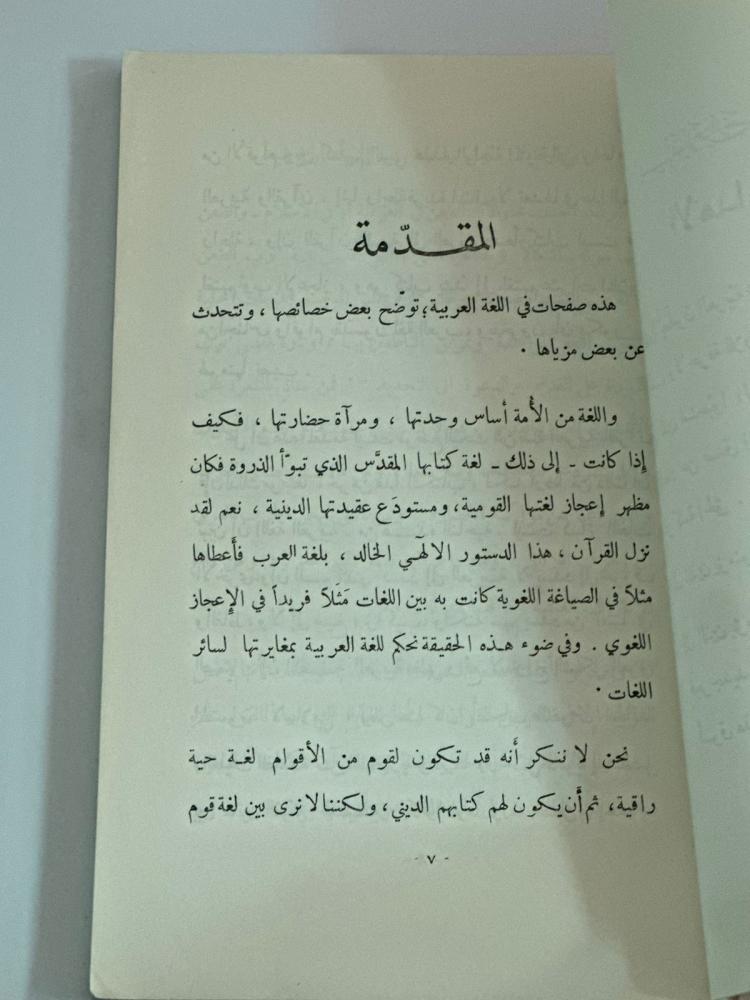 المقدّمة
هذه صفحات في اللغة العربية؛ توضّح بعض خصائصها، وتتحدث
عن بعض مزياها.
واللغة من الأُمة أساس وحدتها، ومرآة حضارتها، فكيف
إذا كانت - إلى ذلك - لغة كتابها المقدَّس الذي تبوّأ الذروة فكان
مظهر إعجاز لغتها القومية، ومستودَع عقيدتها الدينية، نعم لقد
نزل القرآن، هذا الدستور الالهٓي الخالد، بلغة العرب فأَعطاها
مثلاً في الصياغة اللغوية كانت به بين اللغات مَثَلاً فريداً في الإِعجاز
اللغوي. وفي ضوء هذه الحقيقة نحكم للغة العربية بمغايرتها لسائر
اللغات.
نحن لا ننكر أَنه قد تكون لقوم من الأقوام لغة حية
راقية، ثم أَن يكون لهم كتابهم الديني، ولكننا لا نرى بين لغة قوم
- ٧ -